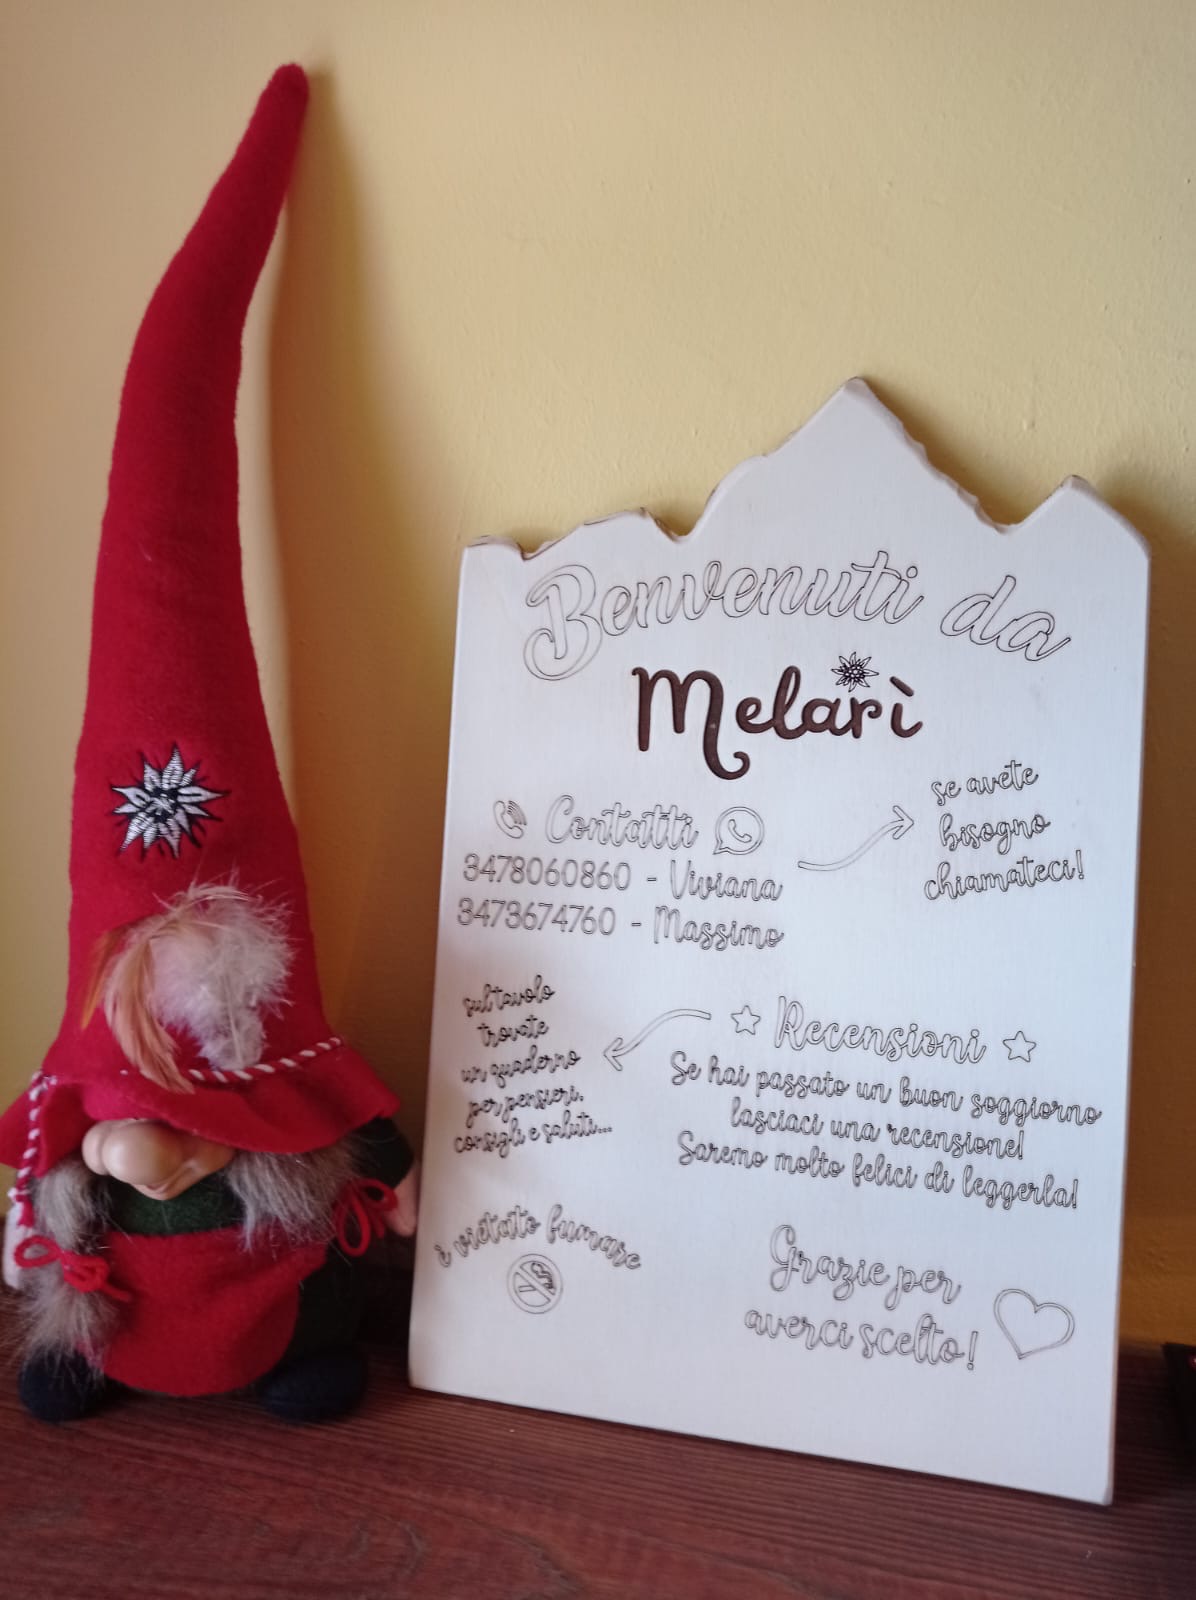 Benvenuti da
Melarì
Contatti
3478060860 - Viviana
3473674760 - Massimo
se avete
bisogno
chiamateci!
Recensioni
Se hai passato un buon soggiorno
lasciaci una recensione!
Saremo molto felici di leggerla!
sul tavolo
trovate
un quaderno
per pensieri,
consigli e saluti...
è vietato fumare
Grazie per
averci scelto!